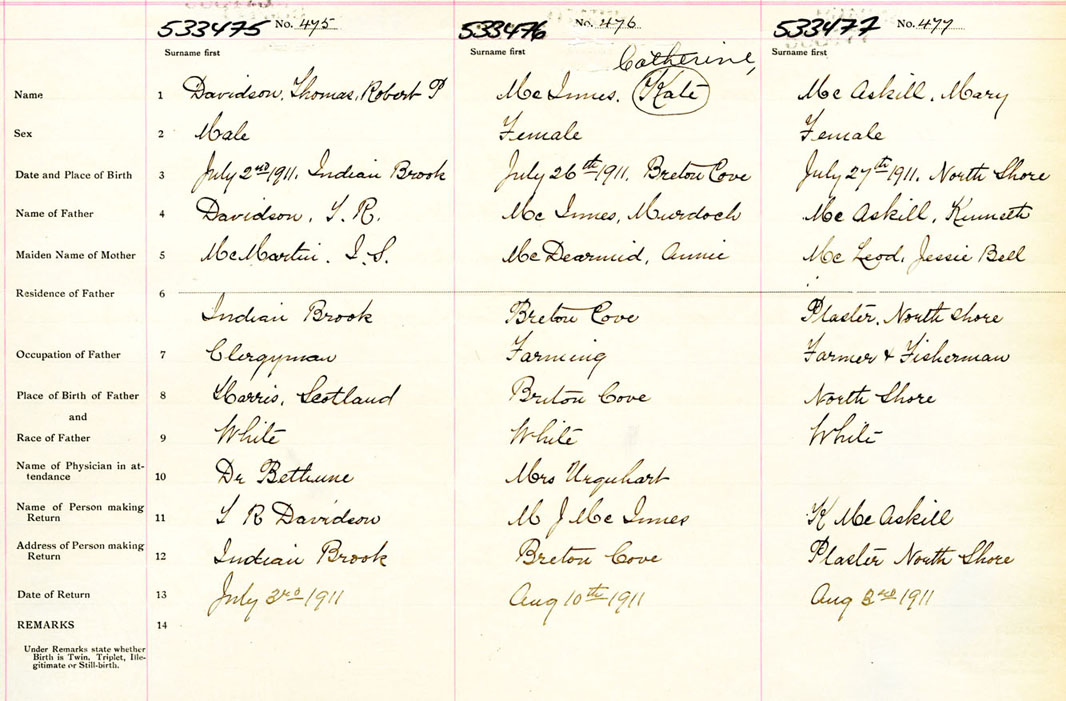 533475 No. 475 533476 No. 476 533477 No. 477
Surname first Surname first Surname first
Catherine,
Name 1 Davidson, Thomas, Robert P Mc Innes, Kate Mc Askill, Mary
Sex 2 Male Female Female
Date and Place of Birth 3 July 2nd 1911, Indian Brook July 26th 1911, Breton Cove July 27th 1911, North Shore
Name of Father 4 Davidson, S. R. Mc Innes, Murdoch Mc Askill, Kenneth
Maiden Name of Mother 5 McMartin, I. S. McDearmid, Annie Mc Leod, Jessie Bell
Residence of Father 6
Indian Brook Breton Cove Plaster, North Shore
Occupation of Father 7 Clergyman Farming Farmer & Fisherman
Place of Birth of Father 8 Harris, Scotland Breton Cove North Shore
and
Race of Father 9 White White White
Name of Physician in at-
tendance 10 Dr Bethune Mrs Urquhart
Name of Person making
Return 11 S R Davidson M J Mc Innes K Mc Askill
Address of Person making
Return 12 Indian Brook Breton Cove Plaster North Shore
Date of Return 13 July 3rd 1911 Aug 10th 1911 Aug 3rd 1911
REMARKS 14
Under Remarks state whether
Birth is Twin, Triplet, Ille-
gitimate or Still-birth.